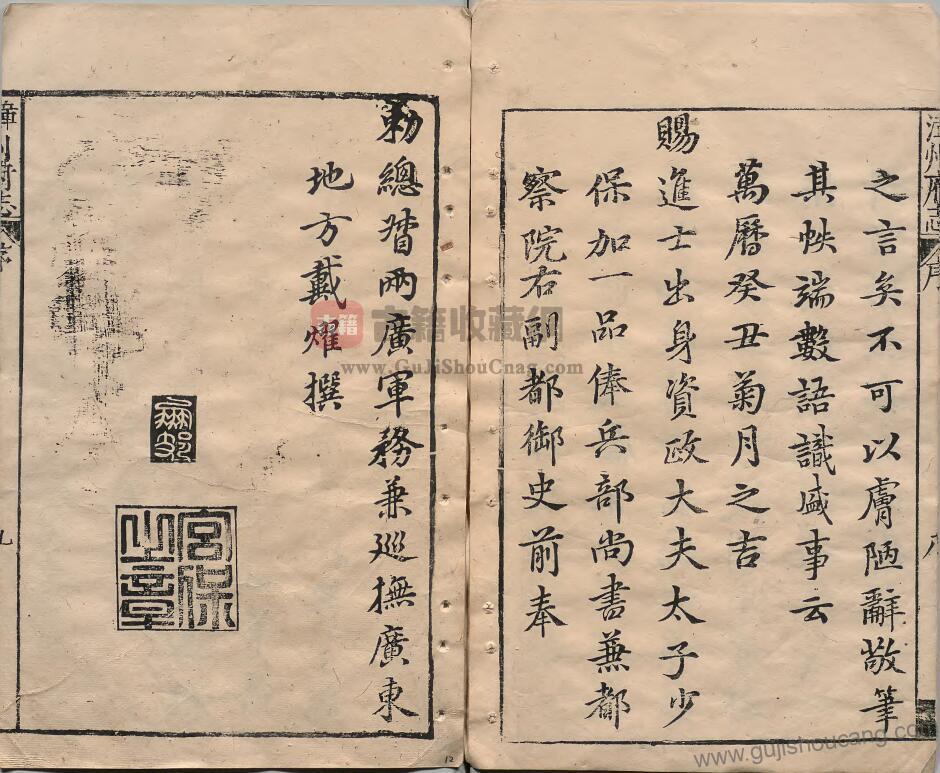 漳州府志
序
八
之言矣不可以膚陋辭敬筆
其帙端數語識盛事云
萬曆癸丑菊月之吉
賜
進士出身資政大夫太子少
保加一品俸兵部尚書兼都
察院右副都御史前奉
勑總督兩廣軍務兼巡撫廣東
地方戴燿撰
宮保之章
漳州府志
序
九
12
古籍
古籍收藏网
www.GuJiShouCang.com
www.gujishoucang.com